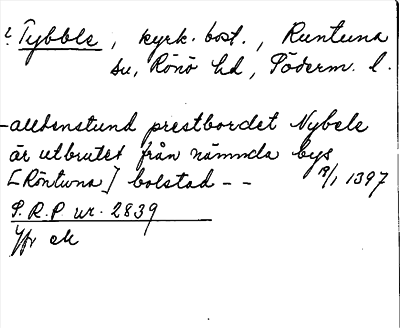 ? Tybble, kyrk. bost., Runtuna
su, Rönö hd, Söderm. l.
-alldenstund prestbordet Nybele
är utbrutet från nämnda bys
[Röntuna] bolstad -- 9/1 1397
S.R.P nr. 2839